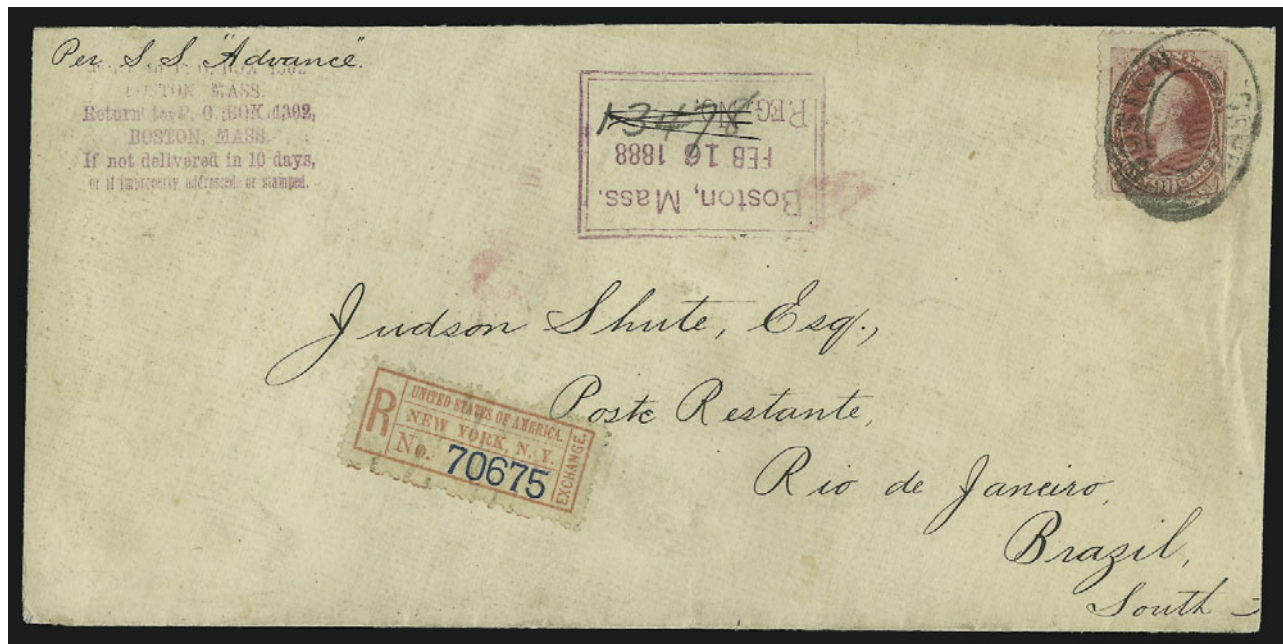 Per S.S. "Advance".
BOSTON, MASS.
Return to P. O. BOX 1392,
BOSTON, MASS.
If not delivered in 10 days,
or if improperly addressed or stamped.
Boston, Mass.
FEB 16 1888
REG. NO.
13478
BOSTON MASS.
CENTS
Judson Shute, Esq.,
Poste Restante,
Rio de Janeiro,
Brazil,
South
R
UNITED STATES OF AMERICA.
NEW YORK, N. Y.
No. 70675
EXCHANGE.